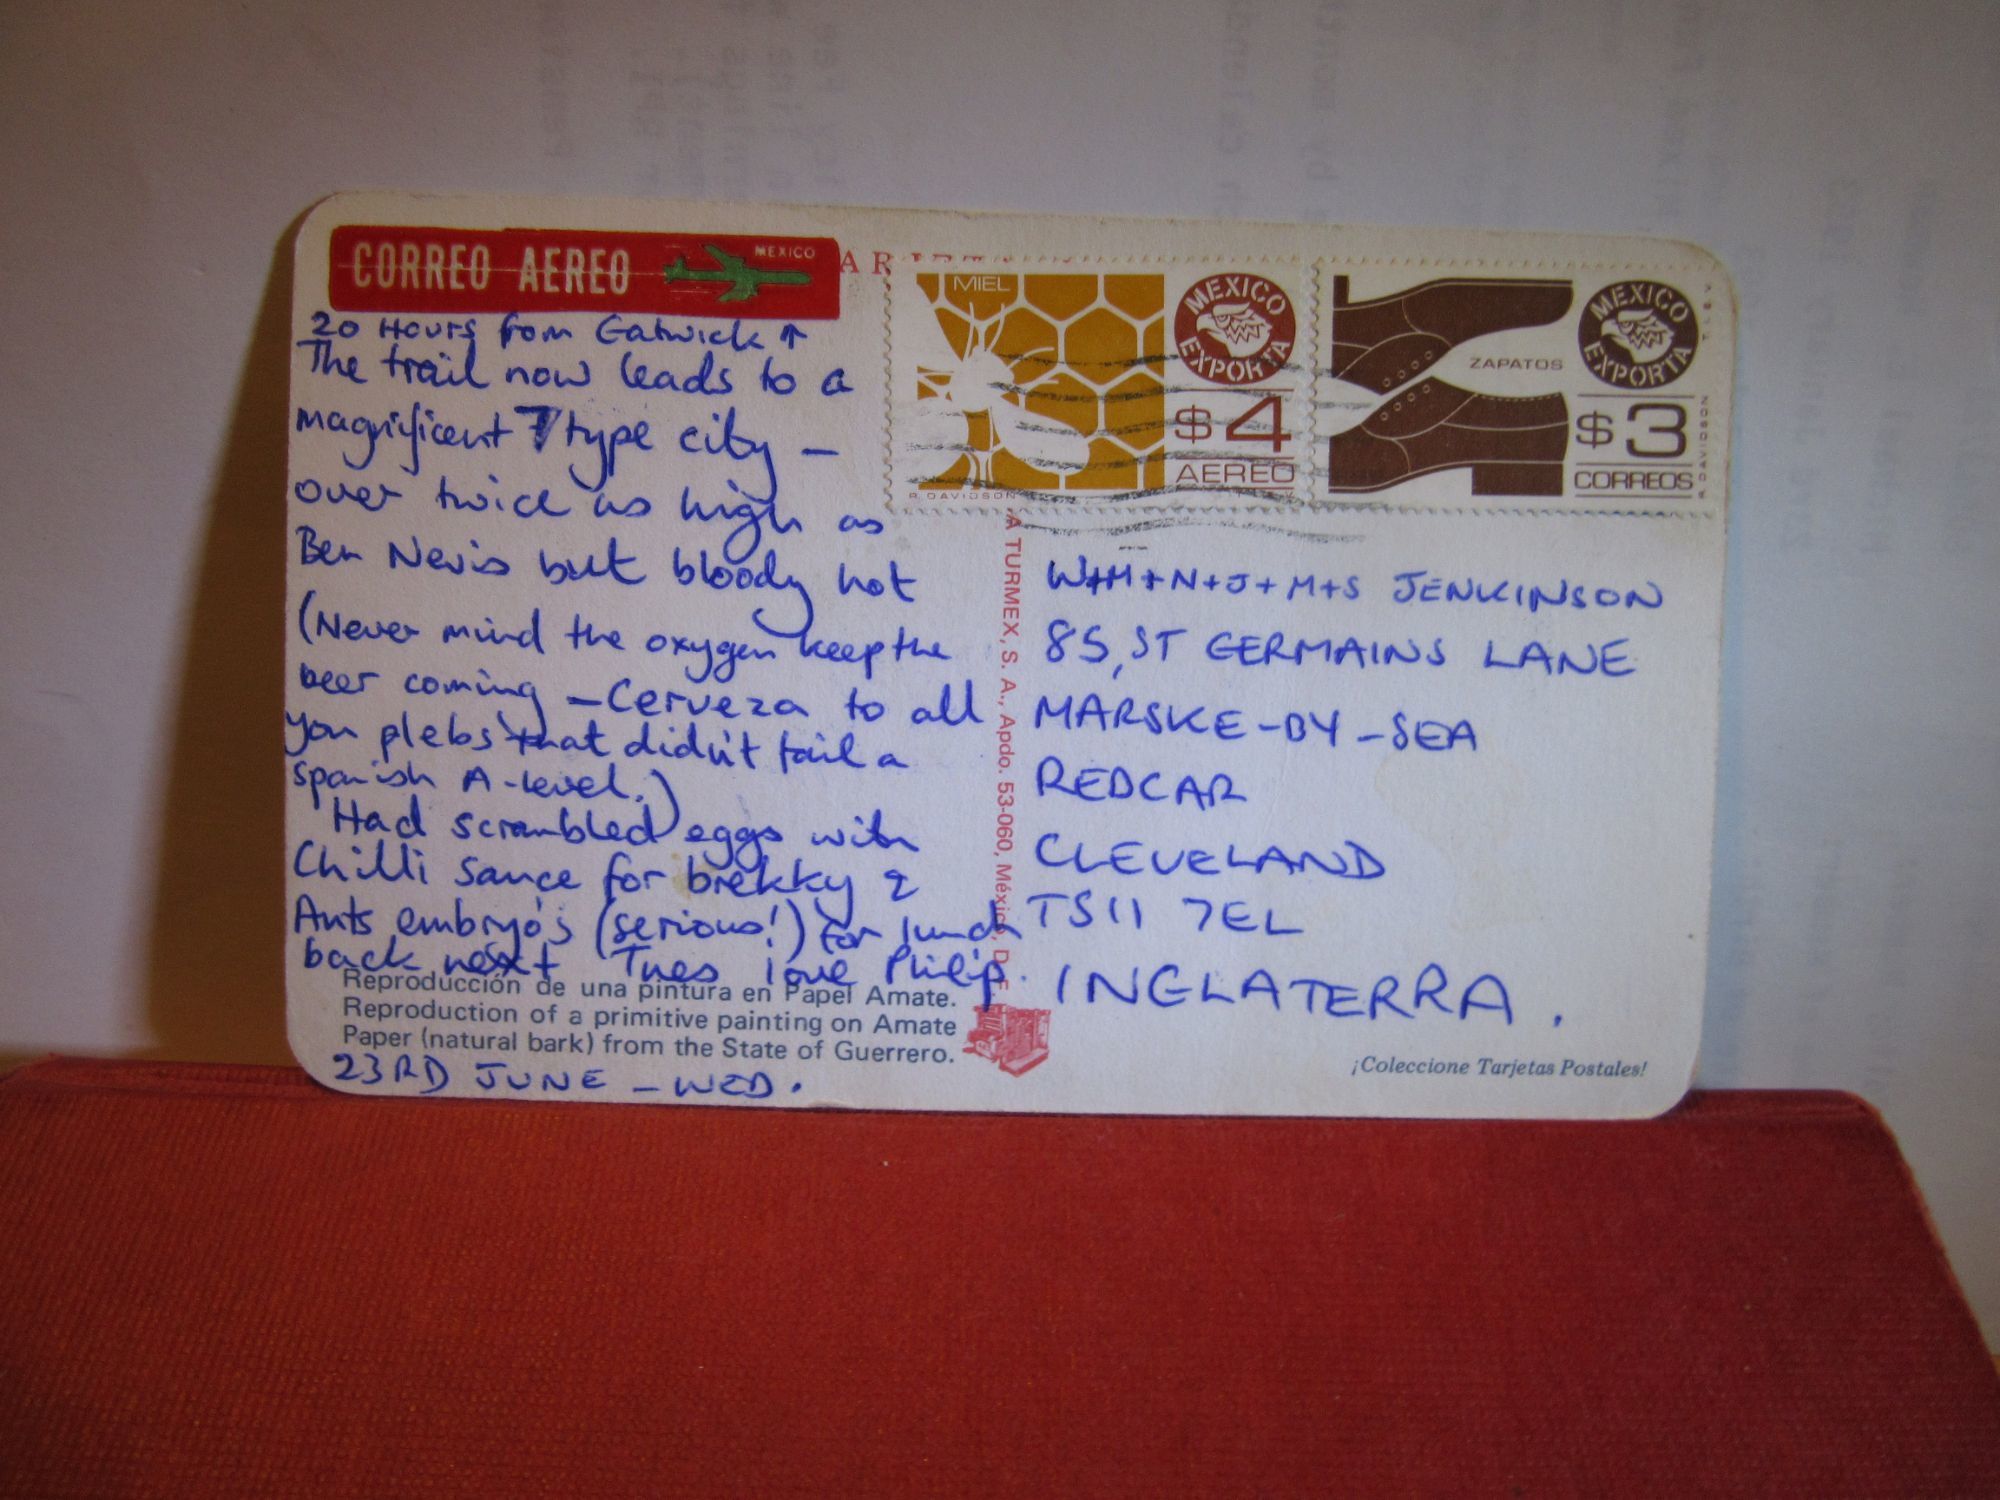 CORREO AEREO MEXICO
20 Hours from Gatwick ↑
The trail now leads to a
magnificent 7 type city –
over twice as high as
Ben Nevis but bloody hot
(Never mind the oxygen keep the
beer coming – Cerveza to all
you plebs that didn't fail a
Spanish A-level.)
Had scrambled eggs with
Chilli sauce for brekky &
Ants embryo's (serious!) for lunch
back next Tues love Philip.
Reproducción de una pintura en Papel Amate.
Reproduction of a primitive painting on Amate
Paper (natural bark) from the State of Guerrero.
23RD JUNE – WED.
A TURMEX, S. A., Apdo. 53-060, México, D.F.
MIEL
MEXICO EXPORTA
$4
AEREO
R. DAVIDSON
ZAPATOS
MEXICO EXPORTA
$3
CORREOS
R. DAVIDSON
T.I.E.V.
W+M+N+J+M+S JENKINSON
85, ST GERMAINS LANE
MARSKE-BY-SEA
REDCAR
CLEVELAND
TS11 7EL
INGLATERRA.
¡Coleccione Tarjetas Postales!